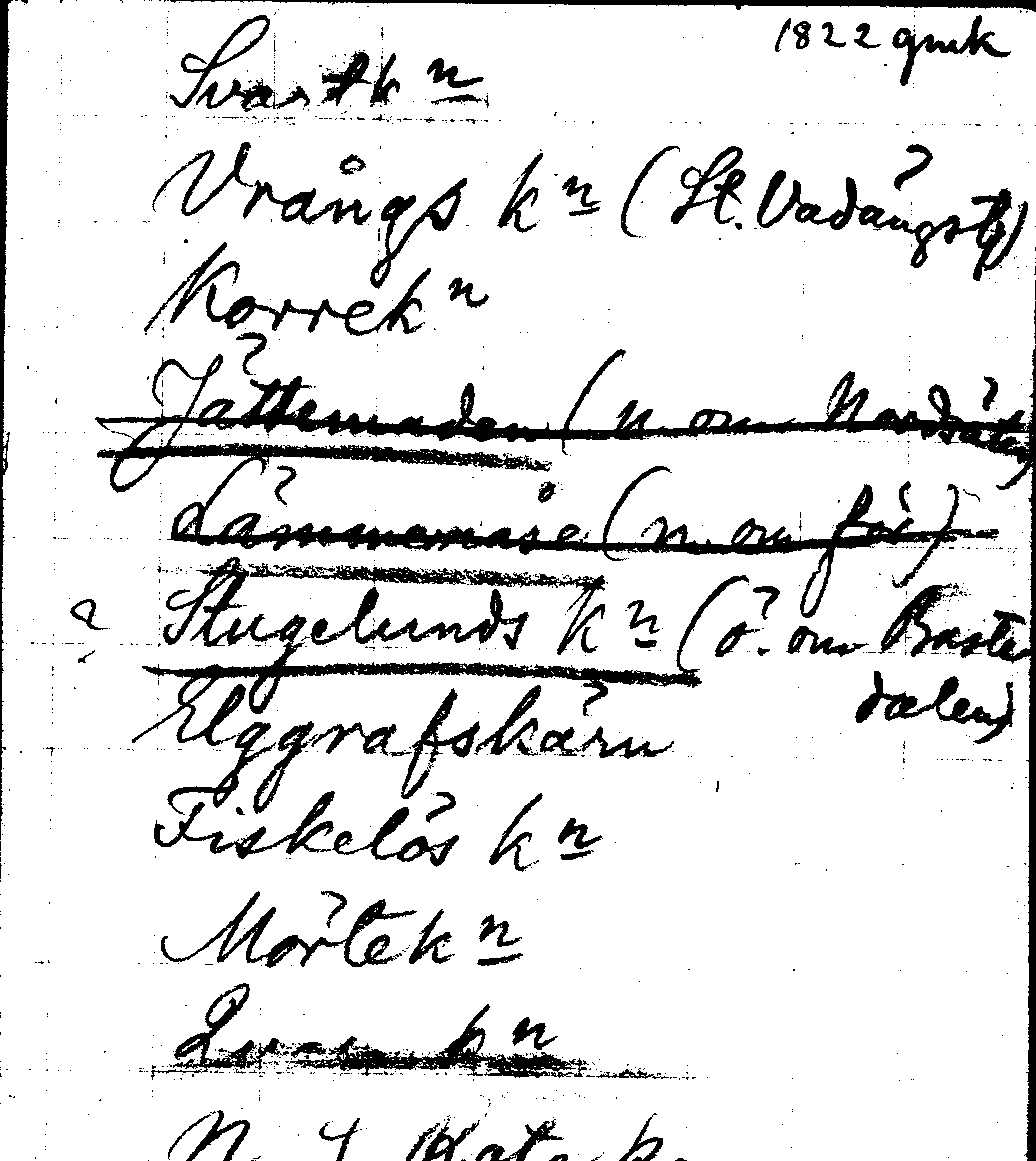 1822 gmk
Svartk n
Vrångs k n (St. Vadängstp)
Korrek n
Jättemaden (n. om Nordsäter)
Lämmenäse (n. om för)
? Stugelunds k n (ö. om Baste
dalen)
Elggrafskärn
Fiskelös k n
Mörtek n
k n
N.